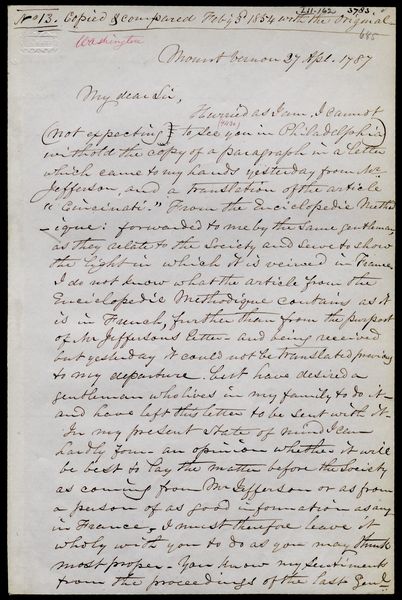 No 13. Copied & compared Feby 8th 1854 with the Original
III-162 3783.
685
Washington
Mount Vernon 27 Apl. 1787
My dear Sir,
Hurried as I am, I cannot
(not expecting) to see you in Philadelphia)
withold the copy of a paragraph in a letter
which came to my hands yesterday from Mr
Jefferson, and a translation of the article
"Cincinati." From the Enciclopedie Method
-ique: forwarded to me by the same gentleman
as they relate to the Society and serve to show
the light in which it is veiwed in France
I do not know what the article from the
Enciclopedie Methodique contains as it
is in French, further than from the purport
of Mr Jeffersons letter - and being received
but yesterday it could not be translated previous
to my departure. but have desired a
gentleman who lives in my family to do it -
and have left this letter to be sent with it -
In my present state of mind I can
hardly form an opinion whether it will
be best to lay the matter before the Society
as coming from Mr Jefferson or as from
a person of as good information as any
in France, I must therefore leave it
wholy with you to do as you may think
most proper - You know my sentiments
from the proceedings of the last Genl